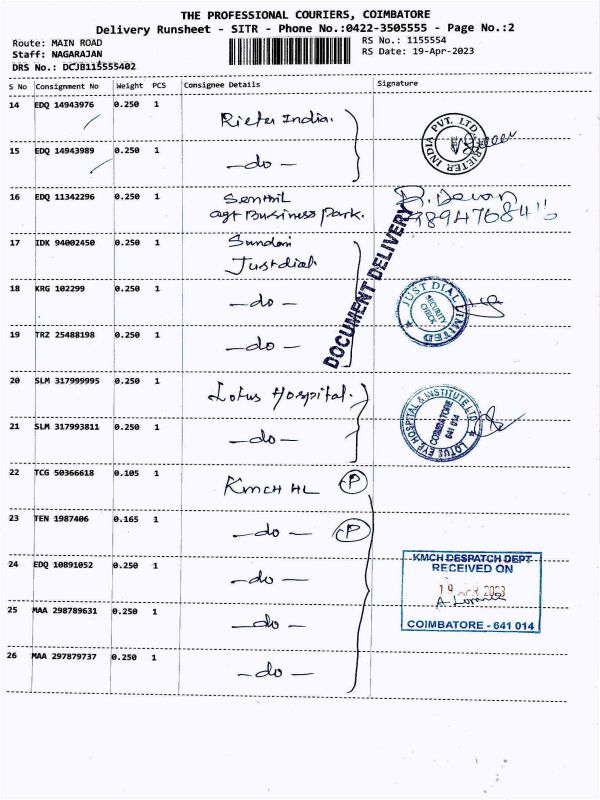 THE PROFESSIONAL COURIERS, COIMBATORE
Delivery Runsheet - SITR - Phone No.:0422-3505555 - Page No.:2
Route: MAIN ROAD
RS No.: 1155554
Staff: NAGARAJAN
RS Date: 19-Apr-2023
DRS No.: DCJB115555402
S No Consignment No Weight PCS Consignee Details Signature
14 EDQ 14943976 0.250 1 Rieter India.
RIETER INDIA PVT. LTD.
15 EDQ 14943989 0.250 1 -do-
16 EDQ 11342296 0.250 1 Senthil
agt Business Park.
17 IDK 94002450 0.250 1 Sundari
Justdial
DOCUMENT DELIVERY
18 KRG 102299 0.250 1 -do-
JUST DIAL LIMITED
SECURITY
CHECK
19 TRZ 25488198 0.250 1 -do-
20 SLM 317999995 0.250 1 Lotus Hospital.
LOTUS EYE HOSPITAL & INSTITUTE LTD
COIMBATORE
641 014
21 SLM 317993811 0.250 1 -do-
22 TCG 50366618 0.105 1 KMCH HL P
23 TEN 1987406 0.165 1 -do- P
24 EDQ 10891052 0.250 1 -do-
KMCH DESPATCH DEPT
RECEIVED ON
19 APR 2023
COIMBATORE - 641 014
25 MAA 298789631 0.250 1 -do-
26 MAA 297879737 0.250 1 -do-